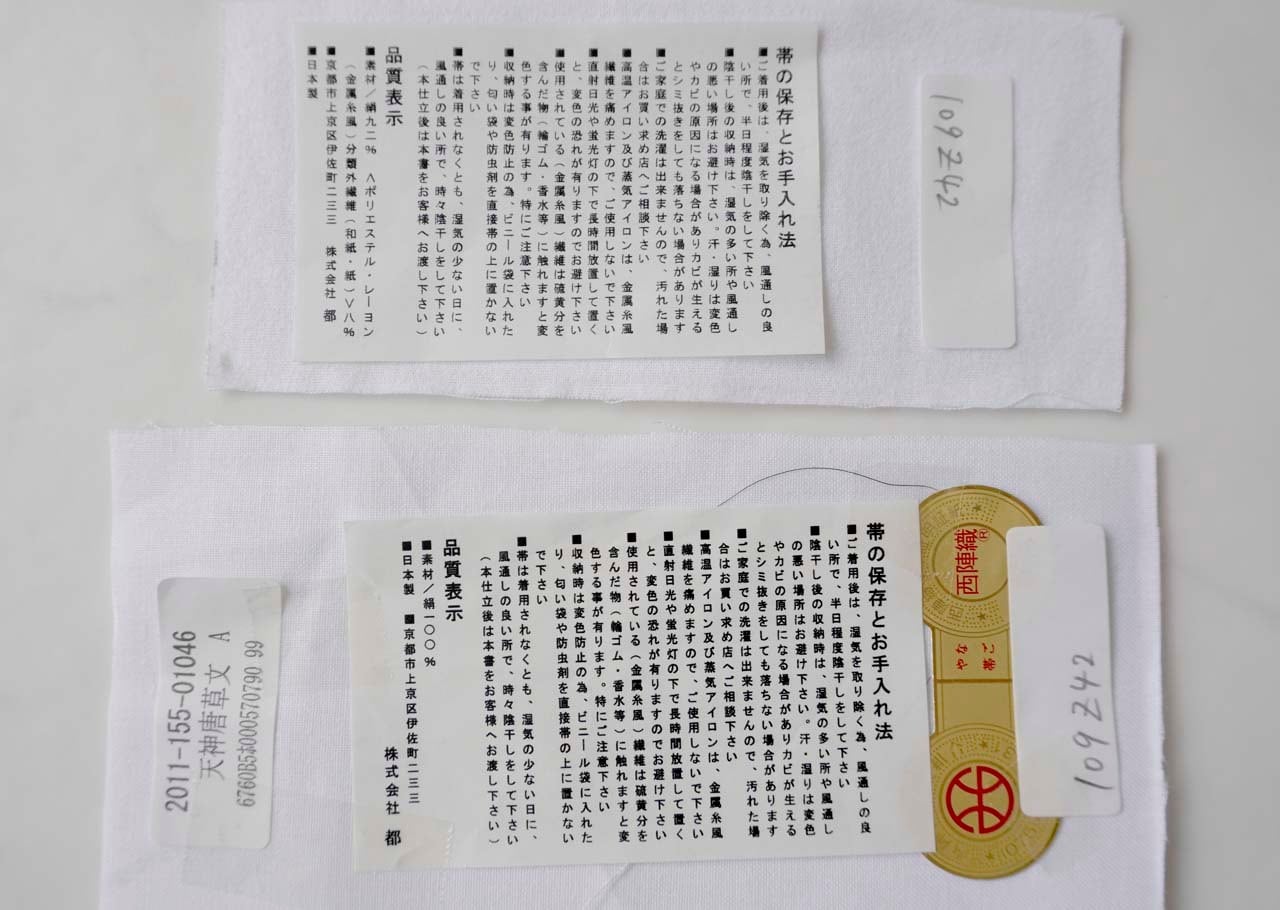 帯の保存とお手入れ法
■ご着用後は、湿気を取り除く為、風通しの良
い所で、半日程度陰干しをして下さい
■陰干し後の収納時は、湿気の多い所や風通し
の悪い場所はお避け下さい。汗・湿りは変色
やカビの原因になる場合がありカビが生える
とシミ抜きをしても落ちない場合があります
■ご家庭での洗濯は出来ませんので、汚れた場
合はお買い求め店へご相談下さい
■高温アイロン及び蒸気アイロンは、金属糸風
繊維を痛めますので、ご使用しないで下さい
■直射日光や蛍光灯の下で長時間放置して置く
と、変色の恐れが有りますのでお避け下さい
■使用されている(金属糸風)繊維は硫黄分を
含んだ物(輪ゴム・香水等)に触れますと変
色する事が有ります。特にご注意下さい
■収納時は変色防止の為、ビニール袋に入れた
り、匂い袋や防虫剤を直接帯の上に置かない
で下さい
■帯は着用されなくとも、湿気の少ない日に、
風通しの良い所で、時々陰干しをして下さい
(本仕立後は本書をお客様へお渡し下さい)
品質表示
■素材/絹九二% <ポリエステル・レーヨン
(金属糸風)分類外繊維(和紙・紙)>八%
■京都市上京区伊佐町二三三 株式会社 都
■日本製
109Z42
帯の保存とお手入れ法
■ご着用後は、湿気を取り除く為、風通しの良
い所で、半日程度陰干しをして下さい
■陰干し後の収納時は、湿気の多い所や風通し
の悪い場所はお避け下さい。汗・湿りは変色
やカビの原因になる場合がありカビが生える
とシミ抜きをしても落ちない場合があります
■ご家庭での洗濯は出来ませんので、汚れた場
合はお買い求め店へご相談下さい
■高温アイロン及び蒸気アイロンは、金属糸風
繊維を痛めますので、ご使用しないで下さい
■直射日光や蛍光灯の下で長時間放置して置く
と、変色の恐れが有りますのでお避け下さい
■使用されている(金属糸風)繊維は硫黄分を
含んだ物(輪ゴム・香水等)に触れますと変
色する事が有ります。特にご注意下さい
■収納時は変色防止の為、ビニール袋に入れた
り、匂い袋や防虫剤を直接帯の上に置かない
で下さい
■帯は着用されなくとも、湿気の少ない日に、
風通しの良い所で、時々陰干しをして下さい
(本仕立後は本書をお客様へお渡し下さい)
品質表示
■素材/絹一〇〇%
■日本製 ■京都市上京区伊佐町二三三
株式会社 都
2011-155-01046
天神唐草文 A
西陣織®
109Z42